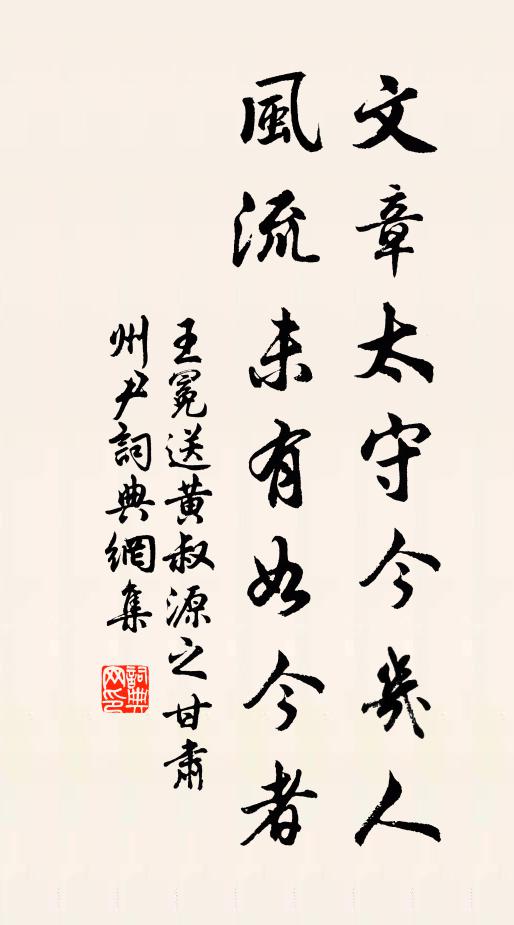 文章太守今幾人
風流未有如今者
王冕送黃叔源之甘肅
州尹詞典網集
詞典網印